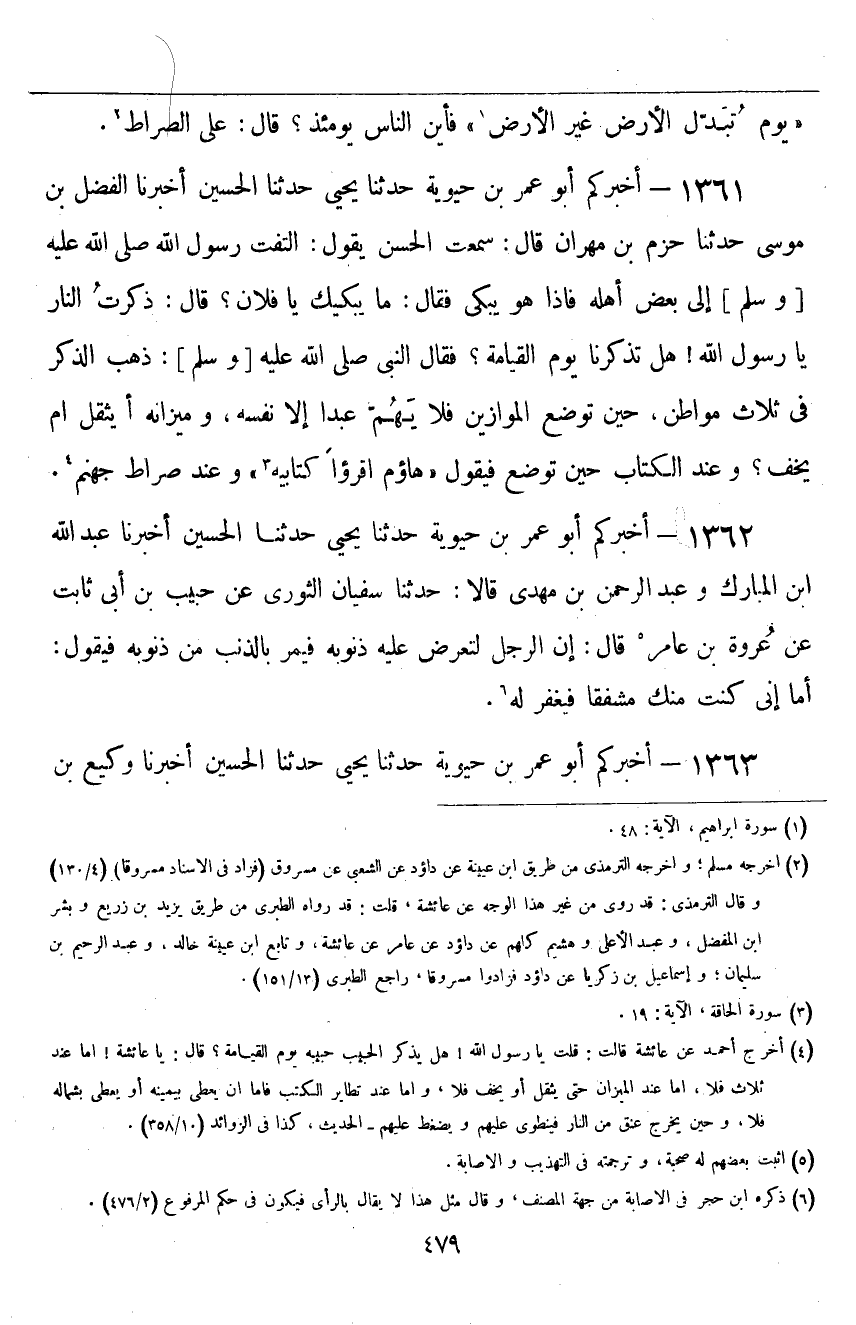 «يوم تُبَدّل الأرض غير الأرض¹» فأين الناس يومئذ؟ قال: على الصراط² .
١٣٦١ – أخبركم أبو عمر بن حيوية حدثنا يحيى حدثنا الحسين أخبرنا الفضل بن
موسى حدثنا حزم بن مهران قال: سمعت الحسن يقول: التفت رسول الله صلى الله عليه
[ و سلم ] إلى بعض أهله فاذا هو يبكى فقال: ما يبكيك يا فلان؟ قال: ذكرتُ النار
يا رسول الله! هل تذكرنا يوم القيامة؟ فقال النبى صلى الله عليه [ و سلم ]: ذهب الذكر
فى ثلاث مواطن، حين توضع الموازين فلا يَهُمّ عبدا إلا نفسه، و ميزانه أ يثقل ام
يخف؟ و عند الكتاب حين توضع فيقول «هاؤم اقرؤا كتابيه³» و عند صراط جهنم⁴ .
١٣٦٢ – أخبركم أبو عمر بن حيوية حدثنا يحيى حدثنا الحسين أخبرنا عبد الله
ابن المبارك و عبد الرحمن بن مهدى قالا: حدثنا سفيان الثورى عن حبيب بن أبى ثابت
عن عُروة بن عامر⁵ قال: إن الرجل لتعرض عليه ذنوبه فيمر بالذنب من ذنوبه فيقول:
أما إنى كنت منك مشفقا فيغفر له⁶ .
١٣٦٣ – أخبركم أبو عمر بن حيوية حدثنا يحيى حدثنا الحسين أخبرنا وكيع بن
(١) سورة ابراهيم، الآية: ٤٨ .
(٢) اخرجه مسلم؛ و اخرجه الترمذى من طريق ابن عيينة عن داؤد عن الشعبى عن مسروق (فزاد فى الاسناد مسروقا) (١٣٠/٤)
و قال الترمذى: قد روى من غير هذا الوجه عن عائشة، قلت: قد رواه الطبرى من طريق يزيد بن زريع و بشر
ابن المفضل، و عبد الأعلى و هشيم كلهم عن داؤد عن عامر عن عائشة، و تابع ابن عيينة خالد، و عبد الرحيم بن
سليمان؛ و إسماعيل بن زكريا عن داؤد فزادوا مسروقا، راجع الطبرى (١٥١/١٣) .
(٣) سورة الحاقة، الآية: ١٩ .
(٤) أخرج أحمد عن عائشة قالت: قلت يا رسول الله! هل يذكر الحبيب حبيبه يوم القيامة؟ قال: يا عائشة! اما عند
ثلاث فلا، اما عند الميزان حتى يثقل أو يخف فلا، و اما عند تطاير الكتب فاما ان يعطى بيمينه أو يعطى بشماله
فلا، و حين يخرج عنق من النار فينطوى عليهم و يضغط عليهم – الحديث، كذا فى الزوائد (٣٥٨/١٠) .
(٥) اثبت بعضهم له صحبة، و ترجمته فى التهذيب و الاصابة .
(٦) ذكره ابن حجر فى الاصابة من جهة المصنف، و قال مثل هذا لا يقال بالرأى فيكون فى حكم المرفوع (٤٧٦/٢) .
٤٧٩